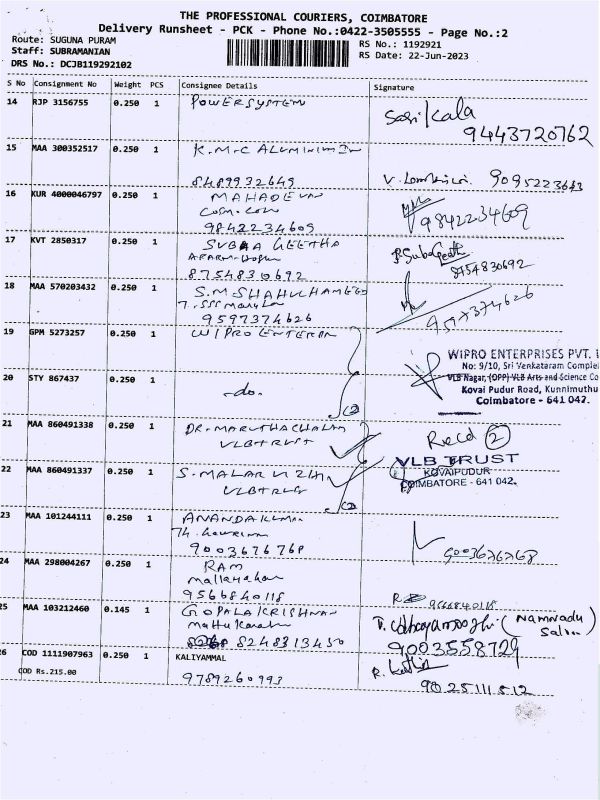 THE PROFESSIONAL COURIERS, COIMBATORE
Delivery Runsheet - PCK - Phone No.:0422-3505555 - Page No.:2
Route: SUGUNA PURAM
Staff: SUBRAMANIAN
DRS No.: DCJB119292102
RS No.: 1192921
RS Date: 22-Jun-2023
S No Consignment No Weight PCS Consignee Details Signature
14 RJP 3156755 0.250 1 POWERSYSTEM
Sasikala
9443720762
15 MAA 300352517 0.250 1 K.M.C ALUMINIUM
8489932649
9095223643
16 KUR 4000046797 0.250 1 MAHADEVAN
9842234609
9842234609
17 KVT 2850317 0.250 1 SUBAA GEETHA
8754830692
8754830692
18 MAA 570203432 0.250 1 S.M SHAHULHAMEED
9597374626
9597374626
19 GPM 5273257 0.250 1 WIPRO ENTERPR
WIPRO ENTERPRISES PVT.
No: 9/10, Sri Venkataram Comple
VLB Nagar, (OPP) VLB Arts and Science Co
Kovai Pudur Road, Kunnimuthu
Coimbatore - 641 042.
20 STY 867437 0.250 1 -do-
21 MAA 860491338 0.250 1 DR. MARUTHACHALAM
VLB TRUST
Recd 2
VLB TRUST
KOVAIPUDUR
COIMBATORE - 641 042.
22 MAA 860491337 0.250 1 S. MALARVIZHI
VLB TRUST
23 MAA 101244111 0.250 1 ANANDAKUMAR
9003676768
9003676768
24 MAA 298004267 0.250 1 RAM
9566840118
9566840118
25 MAA 103212460 0.145 1 GOPALAKRISHNAN
8248313450
(Namnadu
Salon)
9003558729
26 COD 1111907963 0.250 1 KALIYAMMAL
COD Rs.215.00
9789260993
9025111512